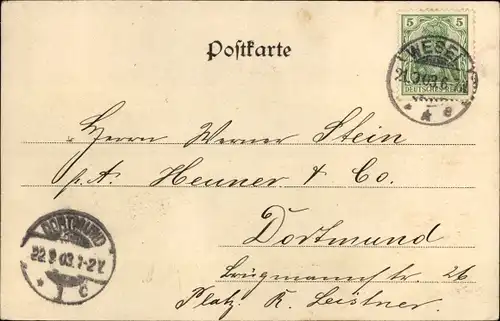 5 5
WESEL
DEUTSCHES REICH
Postkarte
Herrn Werner Stein
p.A. Heuner & Co.
Dortmund
Brügmannstr. 26
Platz. R. Leistner.
DORTMUND
22.9.03.1-2V.
* 1 c